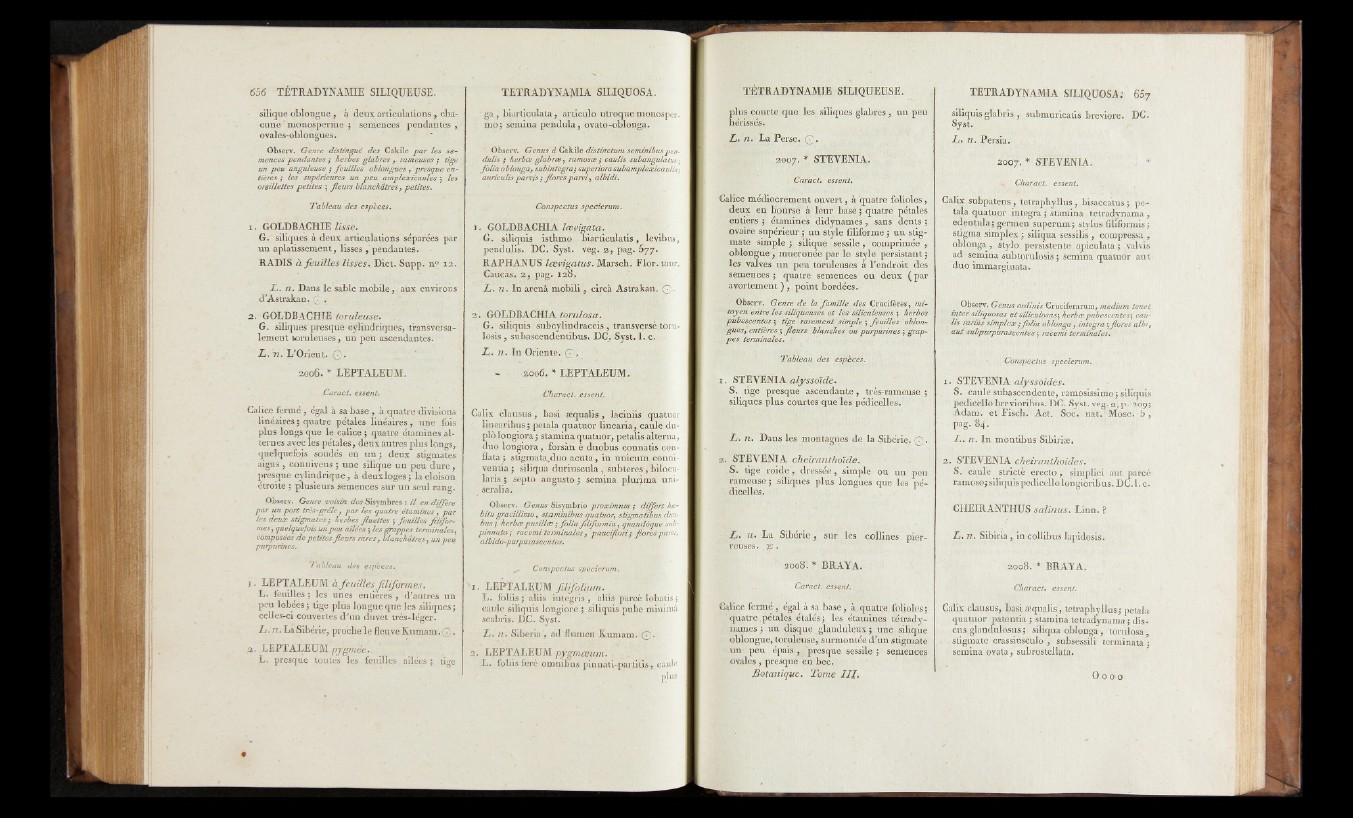 656 TÉTRADYNAMIE SILIQUEUSE.
silique oblongue, à deux articulations, cha-
cune monosperme ; semences pendantes,
ovales-oblongues.
Observ. Genre distingué des Cakile par les se-
mences pendantes ; herbes glabres, rameuses ; tige
un peu anguleuse ; feuilles oblongues, presque en-
tières ; les supérieures un peu amplexicaules ; les
oreillettes petites ; fleurs blanchâtres, petites.
Tableau des espèces.
1. GOLDBACHIE lisse.
G. siliques à deux articulations séparées par
un aplatissement, lisses, pendantes.
RADIS à feuilles lisses. Dict. Supp. nº 12.
L. n. Dans le sable mobile, aux environs
d'Astrakan. ☉.
2. GOLDBACHIE toruleuse.
G. siliques presque cylindriques, transversa-
lement toruleuses, un peu ascendantes.
L. n. L'Orient. ☉.
2006. * LEPTALEUM.
Caract. essent.
Calice fermé, égal à sa base, à quatre divisions
linéaires ; quatre pétales linéaires, une fois
plus longs que le calice ; quatre étamines al-
ternes avec les pétales, deux autres plus longs,
quelquefois soudés en un ; deux stigmates
aigus, connivens ; une silique un peu dure,
presque cylindrique, à deux loges ; la cloison
étroite ; plusieurs semences sur un seul rang.
Observ. Genre voisin des Sisymbres : il en diffère
par un port très-grêle, par les quatre étamines, par
les deux stigmates ; herbes fluettes ; feuilles filifor-
mes, quelquefois un peu ailées ; les grappes terminales,
composées de petites fleurs rares, blanchâtres, un peu
purpurines.
Tableau des espèces.
1. LEPTALEUM à feuilles filiformes.
L. feuilles ; les unes entières, d'autres un
peu lobées ; tige plus longue que les siliques ;
celles-ci couvertes d'un duvet très-léger.
L. n. La Sibérie, proche le fleuve Kumam. ☉.
2. LEPTALEUM pygmée.
L. presque toutes les feuilles ailées ; tige
TETRADYNAMIA SILIQUOSA.
ga, biarticulata, articulo utroque monosper-
mo ; semina pendula, ovato-oblonga.
Observ. Genus à Cakile distinctum seminibus pen-
dulis ; herbæ glabræ, ramosæ ; caulis subangulatus ;
folia oblonga, subintegra ; superiora subamplexicaulia ;
auriculis parvis ; flores parvi, albidi.
Conspectus specierum.
1. GOLDBACHIA lævigata.
G. siliquis isthmo biarticulatis, levibus,
pendulis. DC. Syst. veg. 2, pag. 577.
RAPHANUS lævigatus. Marsch. Flor. taur.
Caucas. 2, pag. 128.
L. n. In arenâ mobili, circà Astrakan. ☉.
2. GOLDBACHIA torulosa.
G. siliquis subcylindraceis, transversè toru-
losis, subascendentibus. DC. Syst. l. c.
L. n. In Oriente. ☉.
2006. * LEPTALEUM.
Charact. essent.
Calix clausus, basi æqualis, laciniis quatuor
linearibus ; petala quatuor linearia, caule du-
plò longiora ; stamina quatuor, petalis alterna,
duo longiora, forsàn è duobus connatis con-
flata ; stigmata duo acuta, in unicum conni-
ventia ; siliqua duriuscula, subteres, bilocu-
laris ; septo angusto ; semina plurima uni-
seralia.
Observ. Genus Sisymbrio proximum ; differt ha-
bitu gracillimo, staminibus quatuor, stigmatibus duo-
bus ; herbæ pusillæ ; folia filiformia, quandòque sub-
pinnata ; racemi terminales, pauciflori ; flores parvi,
albido-purpurascentes.
Conspectus specierum.
1. LEPTALEUM filifolium.
L. foliis ; aliis integris, aliis parcè lobatis ;
caule siliquis longiore ; siliquis pube minimâ
scabris. DC. Syst.
L. n. Siberia, ad flumen Kumam. ☉.
2. LEPTALEUM pygmæum.
L. foliis ferè omnibus pinnati-partitis, caule
plus
TÉTRADYNAMIE SILIQUEUSE.
plus courte que les siliques glabres, un peu
hérissés.
L. n. La Perse. ☉.
2007. * STEVENIA.
Caract. essent.
Calice médiocrement ouvert, à quatre folioles,
deux en bourse à leur base ; quatre pétales
entiers ; étamines didynames, sans dents ;
ovaire supérieur ; un style filiforme ; un stig-
mate simple ; silique sessile, comprimée,
oblongue, mucronée par le style persistant ;
les valves un peu toruleuses à l'endroit des
semences ; quatre semences ou deux (par
avortement), point bordées.
Observ. Genre de la famille des Crucifères, mi-
toyen entre les siliqueuses et les siliculeuses ; herbes
pubescentes ; tige rarement simple ; feuilles oblon-
gues, entières ; fleurs blanches ou purpurines ; grap-
pes terminales.
Tableau des espèces.
1. STEVENIA alyssoïde.
S. tige presque ascendante, très-rameuse ;
siliques plus courtes que les pédicelles.
L. n. Dans les montagnes de la Sibérie. ☉.
2. STEVENIA cheiranthoïde.
S. tige roide, dressée, simple ou un peu
rameuse ; siliques plus longues que les pé-
dicelles.
L. n. La Sibérie, sur les collines pier-
reuses.
2008. * BRAYA.
Caract. essent.
Calice fermé, égal à sa base, à quatre folioles ;
quatre pétales étalés ; les étamines tétrady-
names ; un disque glanduleux ; une silique
oblongue, toruleuse, surmontée d'un stigmate
un peu épais, presque sessile ; semences
ovales, presque en bec.
Botanique. Tome III.
TETRADYNAMIA SILIQUOSA. 657
siliquis glabris, submuricatis breviore. DC.
Syst.
L. n. Persia.
2007. * STEVENIA.
Charact. essent.
Calix subpatens, tetraphyllus, bisaccatus ; pe-
tala quatuor integra ; stamina tetradynama,
edentula ; germen superum ; stylus filiformis ;
stigma simplex ; siliqua sessilis, compressa,
oblonga, stylo persistente apiculata ; valvis
ad semina subtorulosis ; semina quatuor aut
duo immarginata.
Observ. Genus ordinis Cruciferarum, medium tenet
inter siliquosas et siliculosas ; herbæ pubescentes ; cau-
lis rariùs simplex ; folia oblonga, integra ; flores albi,
aut subpurpurascentes ; racemi terminales.
Conspectus specierum.
1. STEVENIA alyssoides.
S. caule subascendente, ramosissimo ; siliquis
pedicello brevioribus. DC. Syst. veg. 2, p. 209 ;
Adam. et Fisch. Act. Soc. nat. Mosc. 5,
pag. 84.
L. n. In montibus Sibiriæ.
2. STEVENIA cheiranthoides.
S. caule strictè erecto, simplici aut parcè
ramoso ; siliquis pedicello longioribus. DC. l. c.
CHEIRANTHUS salinus. Linn. ?
L. n. Sibiria, in collibus lapidosis.
2008. * BRAYA.
Charact. essent.
Calix clausus, basi æqualis, tetraphyllus ; petala
quatuor patentia ; stamina tetradynama ; dis-
cus glandulosus ; siliqua oblonga, torulosa,
stigmate crassiusculo, subsessili terminata ;
semina ovata, subrostellata.
Oooo